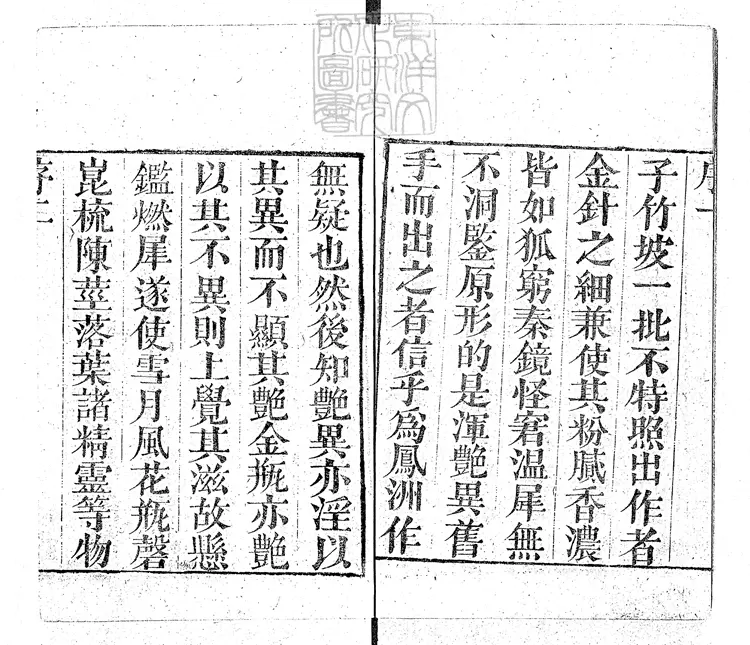 序一
子竹坡一批不特照出作者
金針之細兼使其粉膩香濃
皆如狐窮秦鏡怪窘溫犀無
不洞鑒原形的是渾艷異舊
手而出之者信乎為鳳洲作
無疑也然後知艷異亦淫以
其異而不顯其艷金瓶亦艷
以其不異則止覺其滋故懸
鑑燃犀遂使雪月風花瓶罄
崑梳陳莖落葉諸精靈等物
序二
東洋文
化研究
所圖書